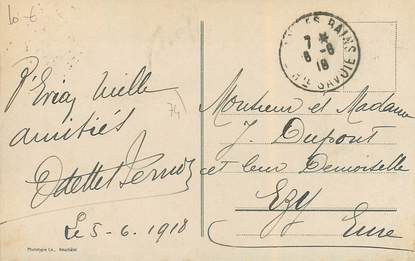 10 €
D'Evian mille
amitiés
74
Le 5-6.1918
Phototypie Co., Neuchâtel
LES BAINS
7 *
6 -6
18
HTE SAVOIE
Monsieur et Madame
J. Dupont
et leur Demoiselle
Ezy
Eure